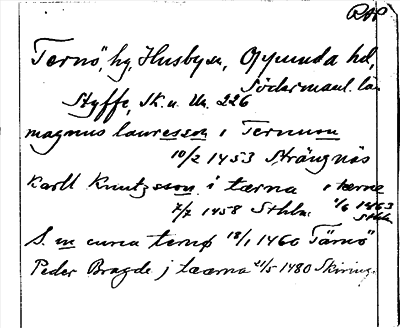 RAP
Ternö, hg, Husbysn, Oppunda hd,
Södermanl. län
Styffe, Sk. u. Un. 226
magnus lauresson i Ternum
10/2 1453 Strängnäs
Karll Knutzsson i tærna i tærna
7/7 1458 Sthlm 4/6 1463
Sthlm
S. m cura ternø 18/1 1460 Tärnö
Peder Bragde j taærna 21/5 1480 Skäring.